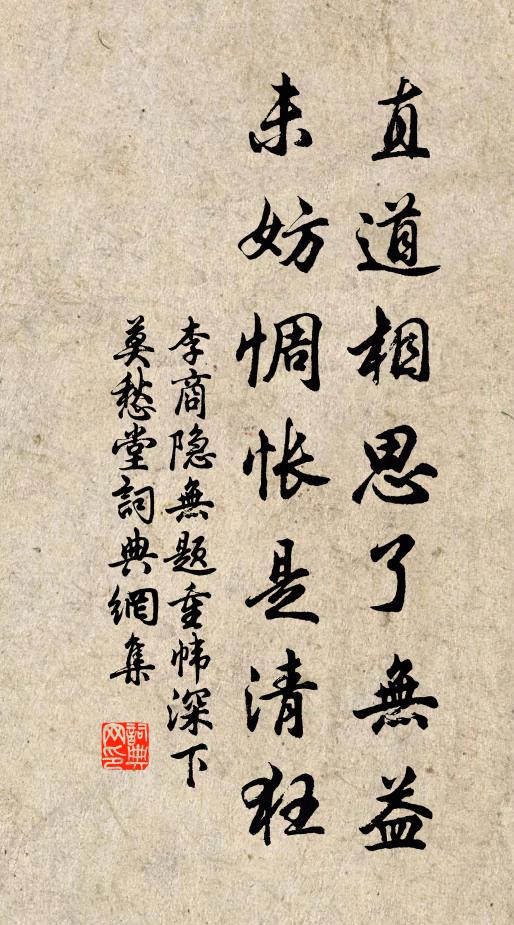 直道相思了無益
未妨惆悵是清狂
李商隐無题重帏深下
莫愁堂詞典網集
詞典
网印